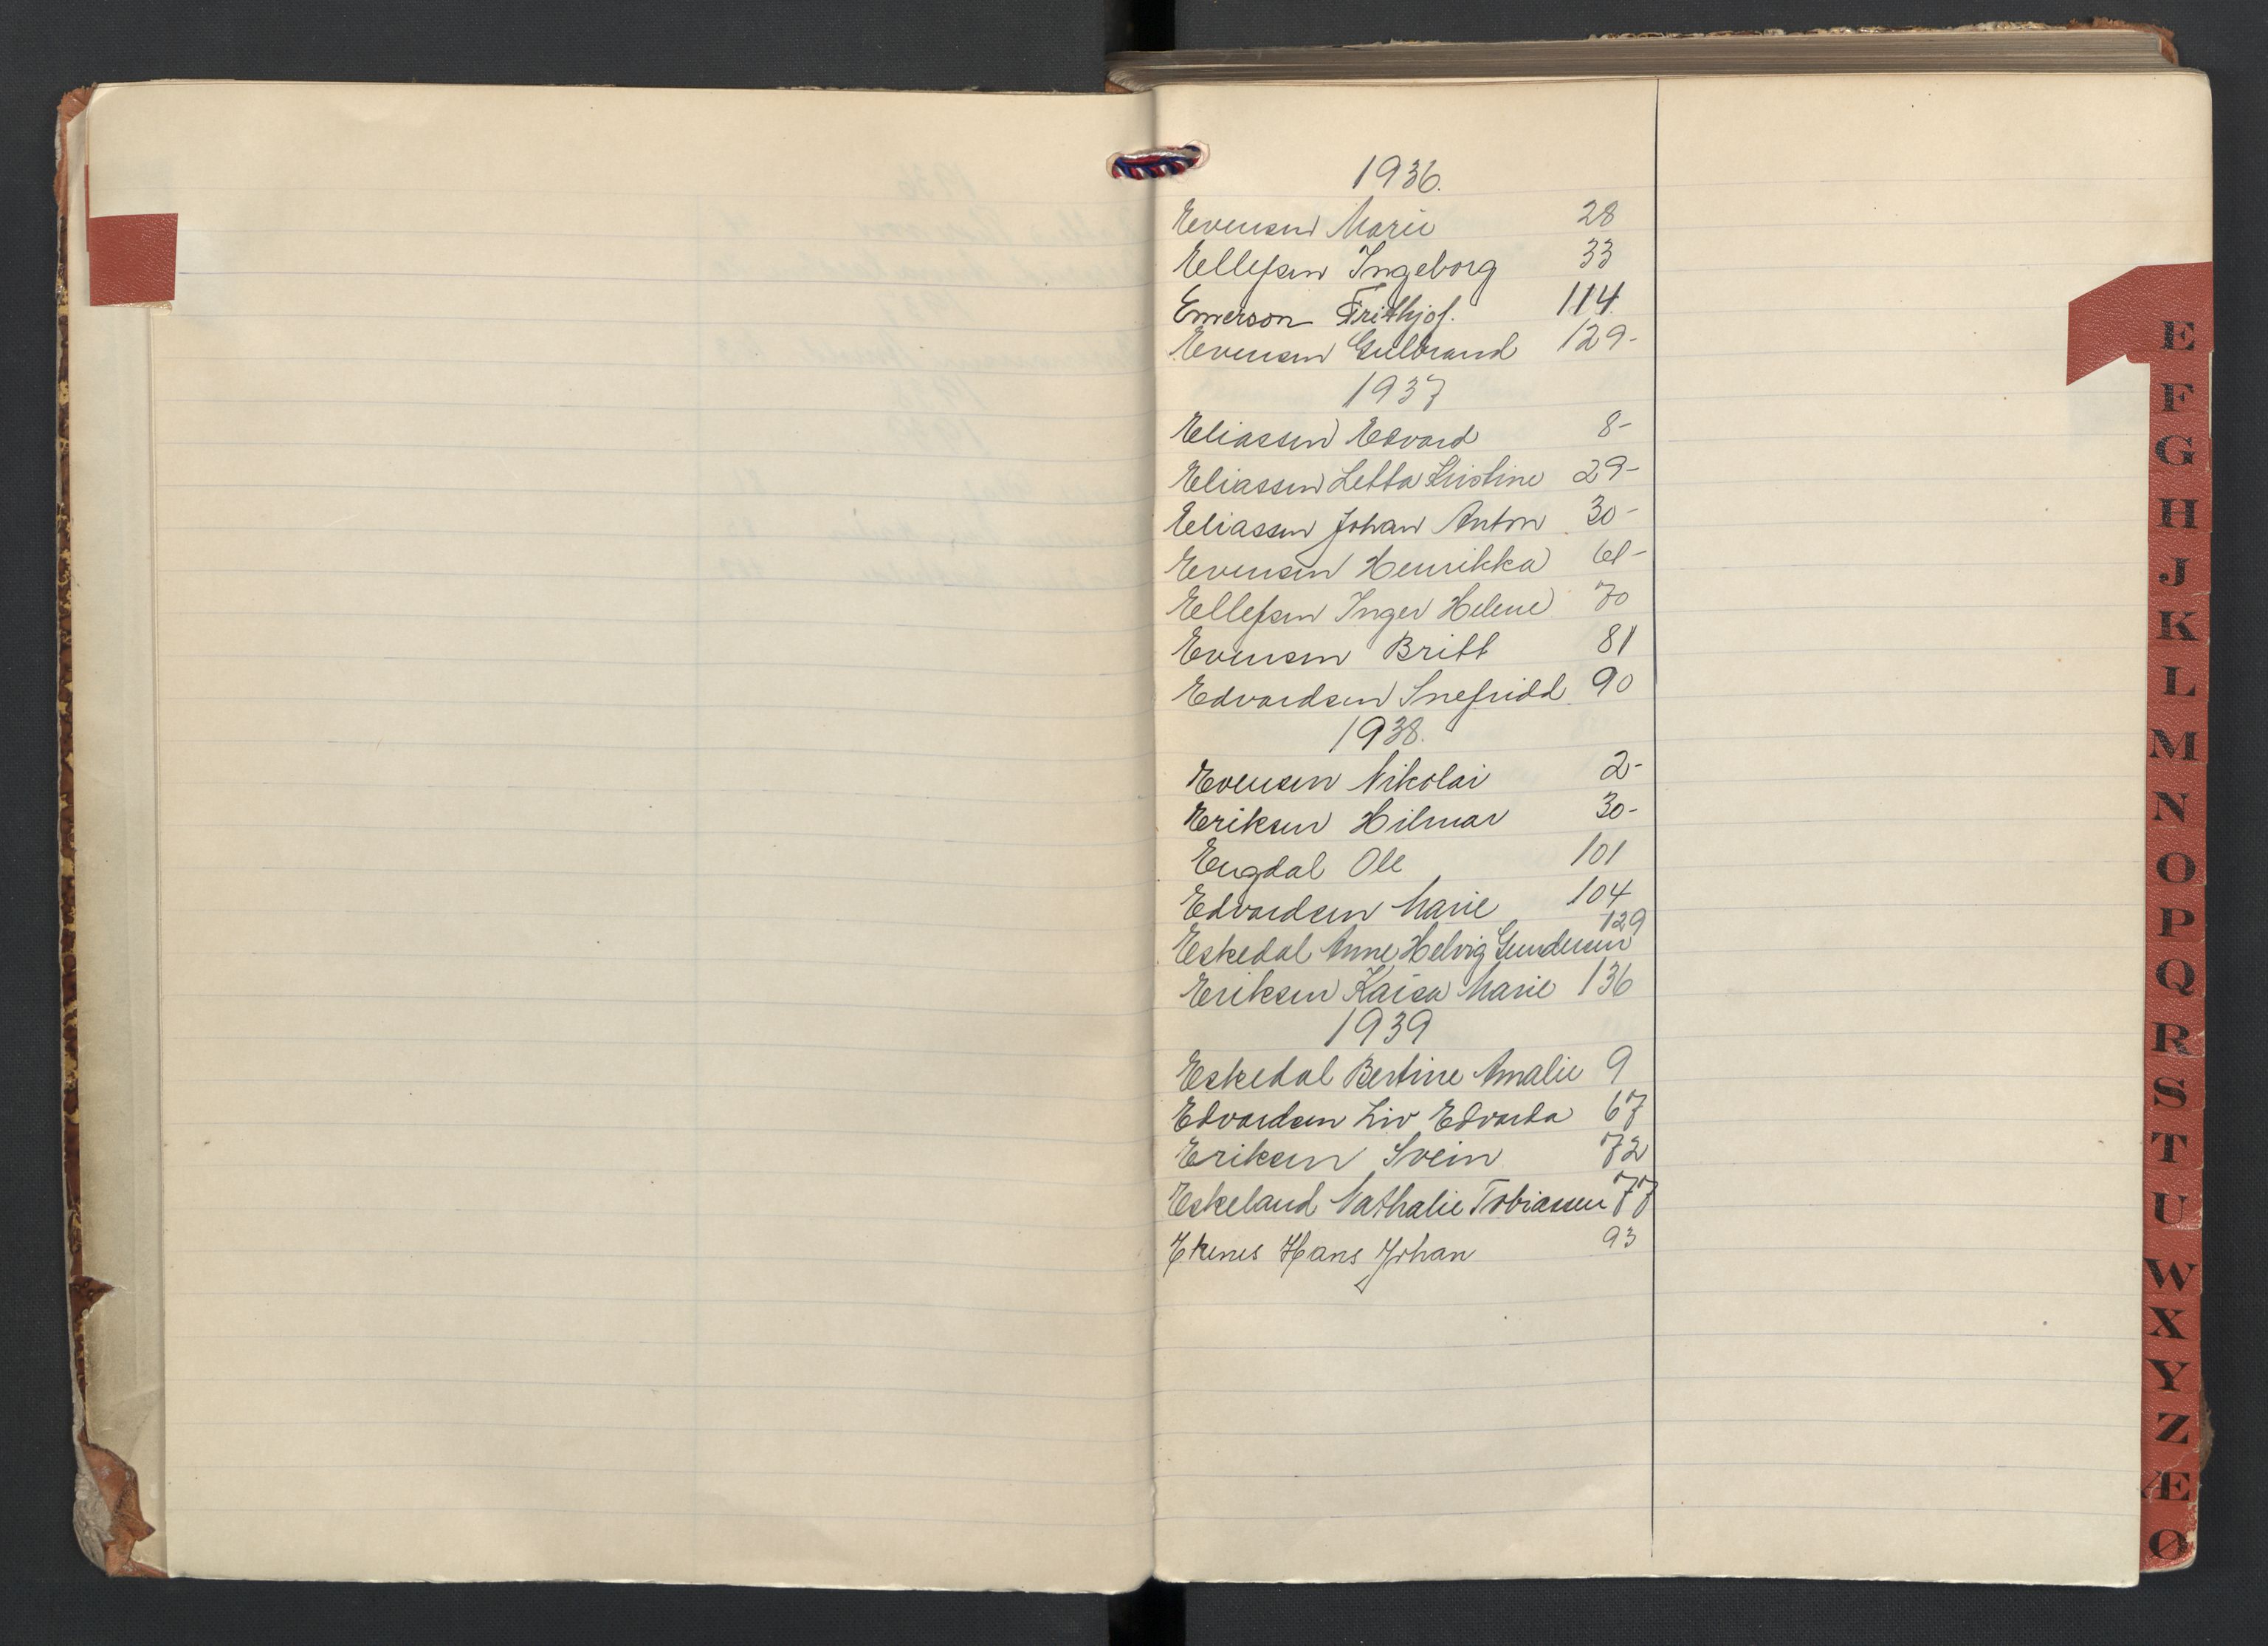 1936.
Evensen Marie 28
Ellefsen Ingeborg 33
Emerson Frithjof. 114.
Evensen Gulbrand 129-
1937
Eliassen Edvard 8-
Eliassen Letta Kristine 29-
Eliassen Johan Anton 30-
Evensen Henrikka 61-
Ellefsen Inger Helene 70
Evensen Britt 81
Edvardsen Snefridd 90
1938.
Evensen Nikolai 2-
Eriksen Hilmar 30-
Engdal Ole 101
Edvardsen Marie 104
129
Eskedal Anne Helvig Gundersen
Eriksen Kaisa Marie 136
1939
Eskedal Bertine Amalie 9
Edvardsen Liv Edvarda 67
Eriksen Svein 72
Eskeland Nathalie Tobiassen 77
Ekenes Hans Johan 93
E
F
G
H
J
K
L
M
N
O
P
Q
R
S
T
U
W
X
Y
Z
Æ
Ø